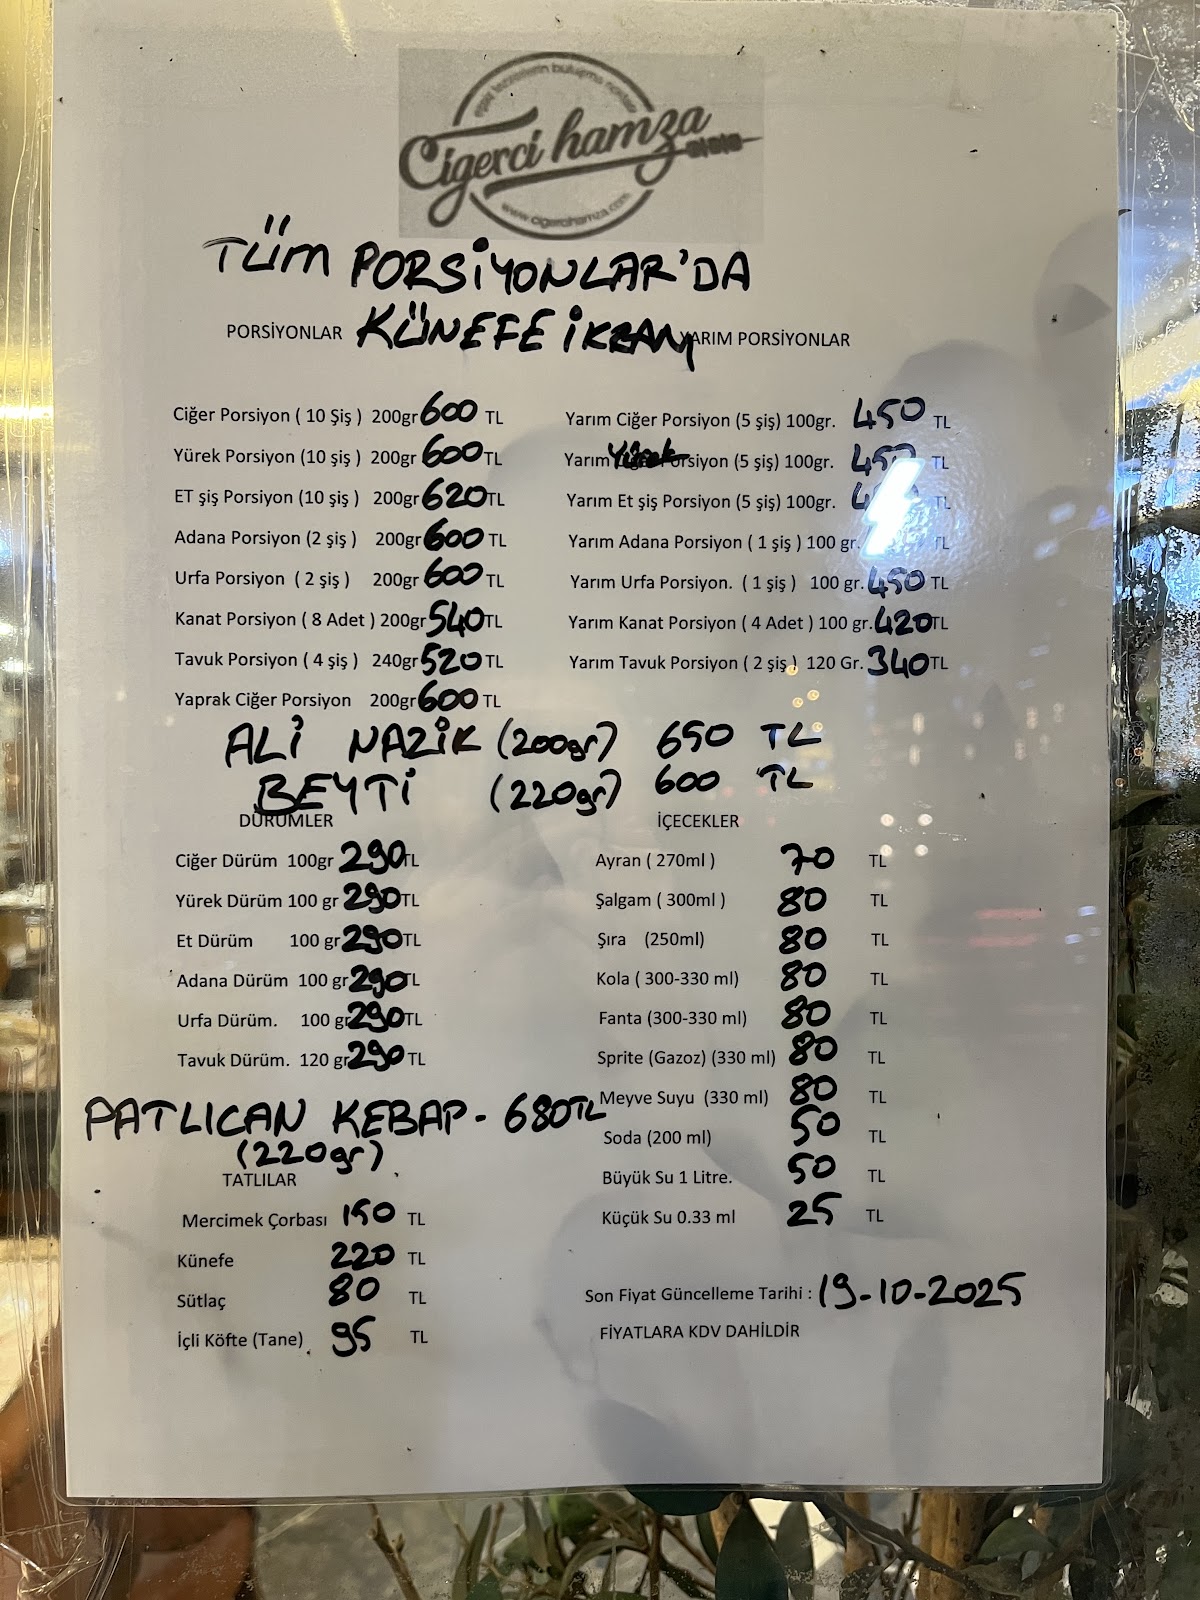 eşsiz lezzetlerin buluşma noktası
Cigerci hamza
www.cigercihamza.com
TÜM PORSİYONLAR'DA
KÜNEFE İKRAM
PORSİYONLAR
Ciğer Porsiyon ( 10 Şiş ) 200gr 600 TL
Yürek Porsiyon (10 şiş ) 200gr 600 TL
ET şiş Porsiyon (10 şiş ) 200gr 620 TL
Adana Porsiyon (2 şiş ) 200gr 600 TL
Urfa Porsiyon ( 2 şiş ) 200gr 600 TL
Kanat Porsiyon ( 8 Adet ) 200gr 540 TL
Tavuk Porsiyon ( 4 şiş ) 240gr 520 TL
Yaprak Ciğer Porsiyon 200gr 600 TL
YARIM PORSİYONLAR
Yarım Ciğer Porsiyon (5 şiş) 100gr. 450 TL
Yarım Yürek Porsiyon (5 şiş) 100gr. 450 TL
Yarım Et şiş Porsiyon (5 şiş) 100gr. TL
Yarım Adana Porsiyon ( 1 şiş ) 100 gr. TL
Yarım Urfa Porsiyon. ( 1 şiş ) 100 gr. 450 TL
Yarım Kanat Porsiyon ( 4 Adet ) 100 gr. 420 TL
Yarım Tavuk Porsiyon ( 2 şiş ) 120 Gr. 340 TL
ALİ NAZİK (200gr) 650 TL
BEYTİ (220gr) 600 TL
DÜRÜMLER
Ciğer Dürüm 100gr 290 TL
Yürek Dürüm 100 gr 290 TL
Et Dürüm 100 gr 290 TL
Adana Dürüm 100 gr 290 TL
Urfa Dürüm. 100 gr 290 TL
Tavuk Dürüm. 120 gr 290 TL
PATLICAN KEBAP - 680TL
(220gr)
TATLILAR
Mercimek Çorbası 150 TL
Künefe 220 TL
Sütlaç 80 TL
İçli Köfte (Tane) 95 TL
İÇECEKLER
Ayran ( 270ml ) 70 TL
Şalgam ( 300ml ) 80 TL
Şıra (250ml) 80 TL
Kola ( 300-330 ml) 80 TL
Fanta (300-330 ml) 80 TL
Sprite (Gazoz) (330 ml) 80 TL
Meyve Suyu (330 ml) 80 TL
Soda (200 ml) 50 TL
Büyük Su 1 Litre. 50 TL
Küçük Su 0.33 ml 25 TL
Son Fiyat Güncelleme Tarihi : 19-10-2025
FİYATLARA KDV DAHİLDİR